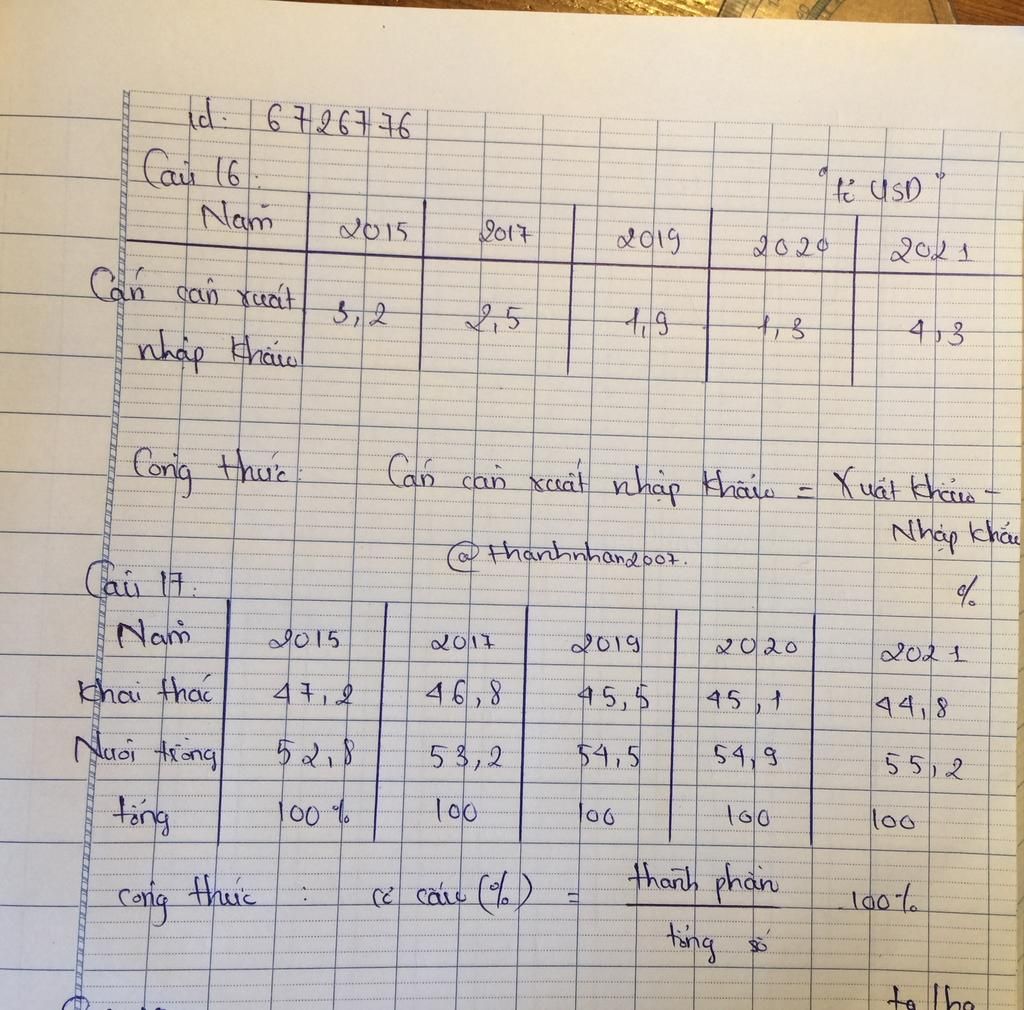 id: 6726776
Câu 16:
"tỉ USD"
Năm 2015 2017 2019 2020 2021
Cán cân xuất nhập khẩu 3,2 2,5 1,9 1,3 4,3
Công thức: Cán cân xuất nhập khẩu = Xuất khẩu -
Nhập khẩu
@thanhnhan2007.
Câu 17:
%
Năm 2015 2017 2019 2020 2021
Khai thác 47,2 46,8 45,5 45,1 44,8
Nuôi trồng 52,8 53,2 54,5 54,9 55,2
tổng 100% 100 100 100 100
công thức : cơ cấu (%) = thành phần / tổng số 100%
tạ/ha